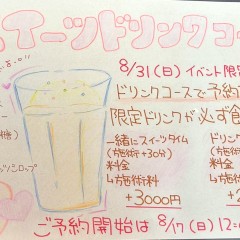 スイーツドリンクコー
8/31(日)イベント限定
ドリンクコースで予約
限定ドリンクが必ず
一緒にスイーツタイム
(施術+30分)
料金
↳施術料
+3000円
ドリ
(施
料金
↳施
+2
糖)
ッツシロップ
ご予約開始は 8/17(日)12: